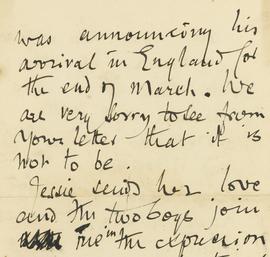 was announcing his
arrival in England for
the end of March. We
are very sorry to see from
your letter that it is
not to be.
Jessie sends her love
and the two boys join
me in the expression